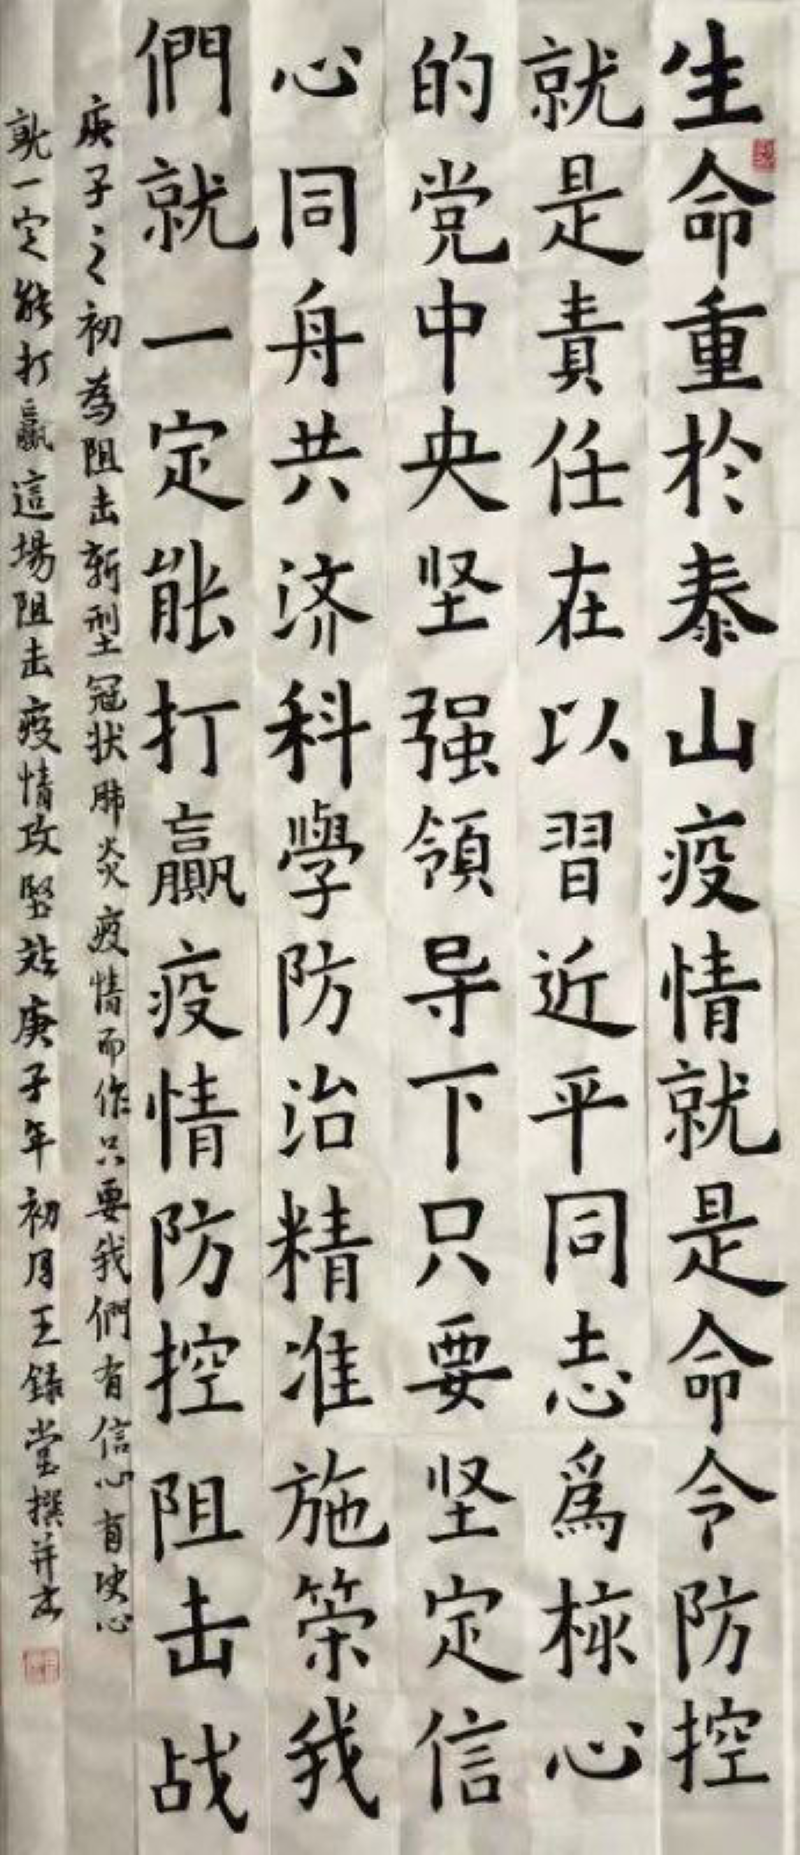 生命重於泰山疫情就是命令防控
就是責任在以習近平同志爲核心
的党中央坚强領导下只要坚定信
心同舟共济科學防治精准施策我
們就一定能打贏疫情防控阻击战
庚子之初為阻击新型冠状肺炎疫情而作只要我們有信心有决心
就一定能打贏這場阻击疫情攻坚站庚子年初月王錄堂撰并书